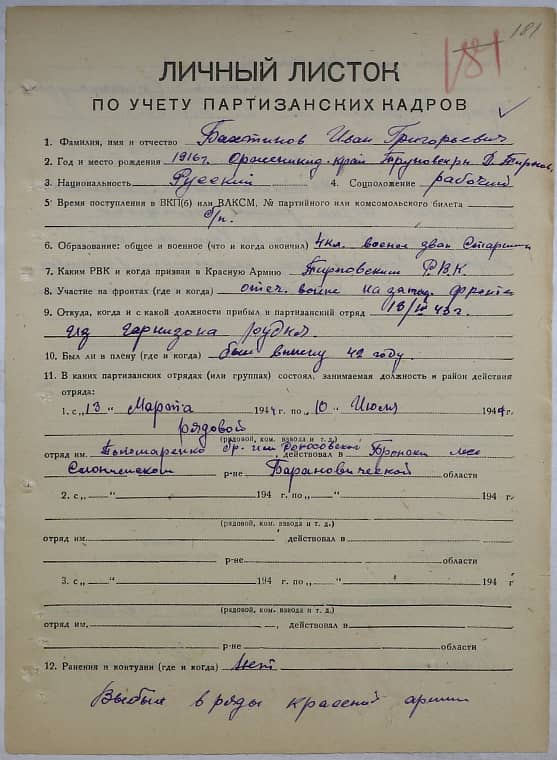 181
181
ЛИЧНЫЙ ЛИСТОК
ПО УЧЕТУ ПАРТИЗАНСКИХ КАДРОВ
1. Фамилия, имя и отчество Бахтинов Иван Григорьевич
2. Год и место рождения 1916 г. Орджоникид. край
3. Национальность Русский 4. Соцположение рабочий
5. Время поступления в ВКП(б) или ВЛКСМ, № партийного или комсомольского билета
б/п.
6. Образование: общее и военное (что и когда окончил) 4 кл. военное зван Старшин
7. Каким РВК и когда призван в Красную Армию Р.В.К.
8. Участие на фронтах (где и когда) отеч. войне на запад. фронте
9. Откуда, и с какой должности прибыл в партизанский отряд 13/III 43 г.
из гарнизона
10. Был ли в плену (где и когда) был в плену 42 году.
11. В каких партизанских отрядах (или группах) состоял, занимаемая должность и район действия
отряда:
1. с „13" Марта 1944 г. по „10" Июля 1944 г.
рядовой
(рядовой, ком. взвода и т. д.)
отряд им. Пономаренко бр. им действовал в лес
р-не Барановической области
2. с „ " 194 г. по „ " 194 г.
(рядовой, ком. взвода и т. д.)
отряд им. , действовал в
р-не области
3. с „ " 194 г. по „ " 194 г
(рядовой, ком. взвода и т. д.)
отряд им. , действовал в
р-не области
12. Ранения и контузии (где и когда) нет
Выбыл в ряды красной армии